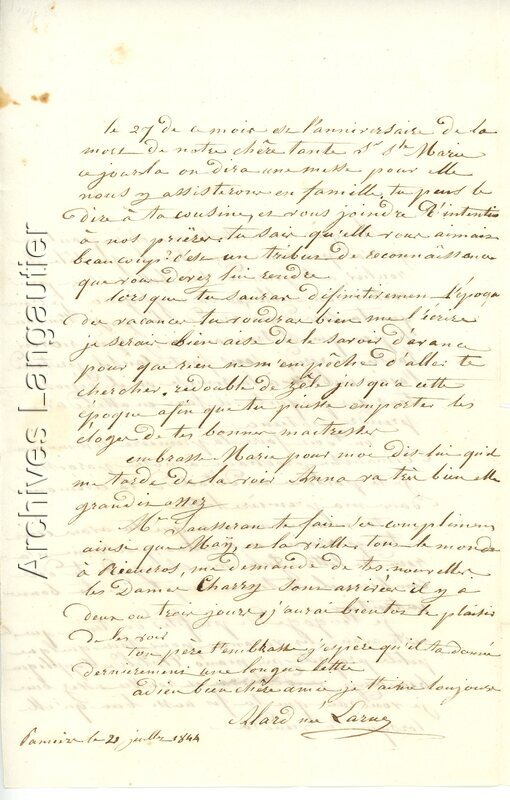 le 27 de ce mois est l'anniversaire de la
mort de notre chère tante Ste Marie
ce jour la on dira une messe pour elle
nous y assisterons en famille, tu peus le
dire à ta cousine, et vous joindre d'intention
à nos prières, tu sais qu'elle vous aimais
beaucoup c'est un tribut de reconnaissance
que vous devez lui rendre
lorsque tu sauras difinitivement l'époque
des vacances tu voudras bien me l'écrire
je serais bien aise de le savoir d'avance
pour que rien ne m'empêche d'aller te
chercher. redouble de zèle jusqu'a cette
époque afin que tu puisse emporter les
éloges de tes bonnes maitresses
embrasse Marie pour moi dis lui qu'il
me tarde de la voir Anna va très bien elle
grandit assez
Mr te fait ses complimens
ainsi que et la vielle, tout le monde
à Rieucros, me demande de tes nouvelles
les Dames Charry sont arrivées il y a
deux ou trois jours, j'aurai bientot le plaisir
de les voir
ton père t'embrasse j'espère qu'il ta donné
dernierement une longue lettre
adieu bien chère amie je t'aime toujours
Alard née Larue
Pamiers le 21 juillet 1844
Archives Langautier